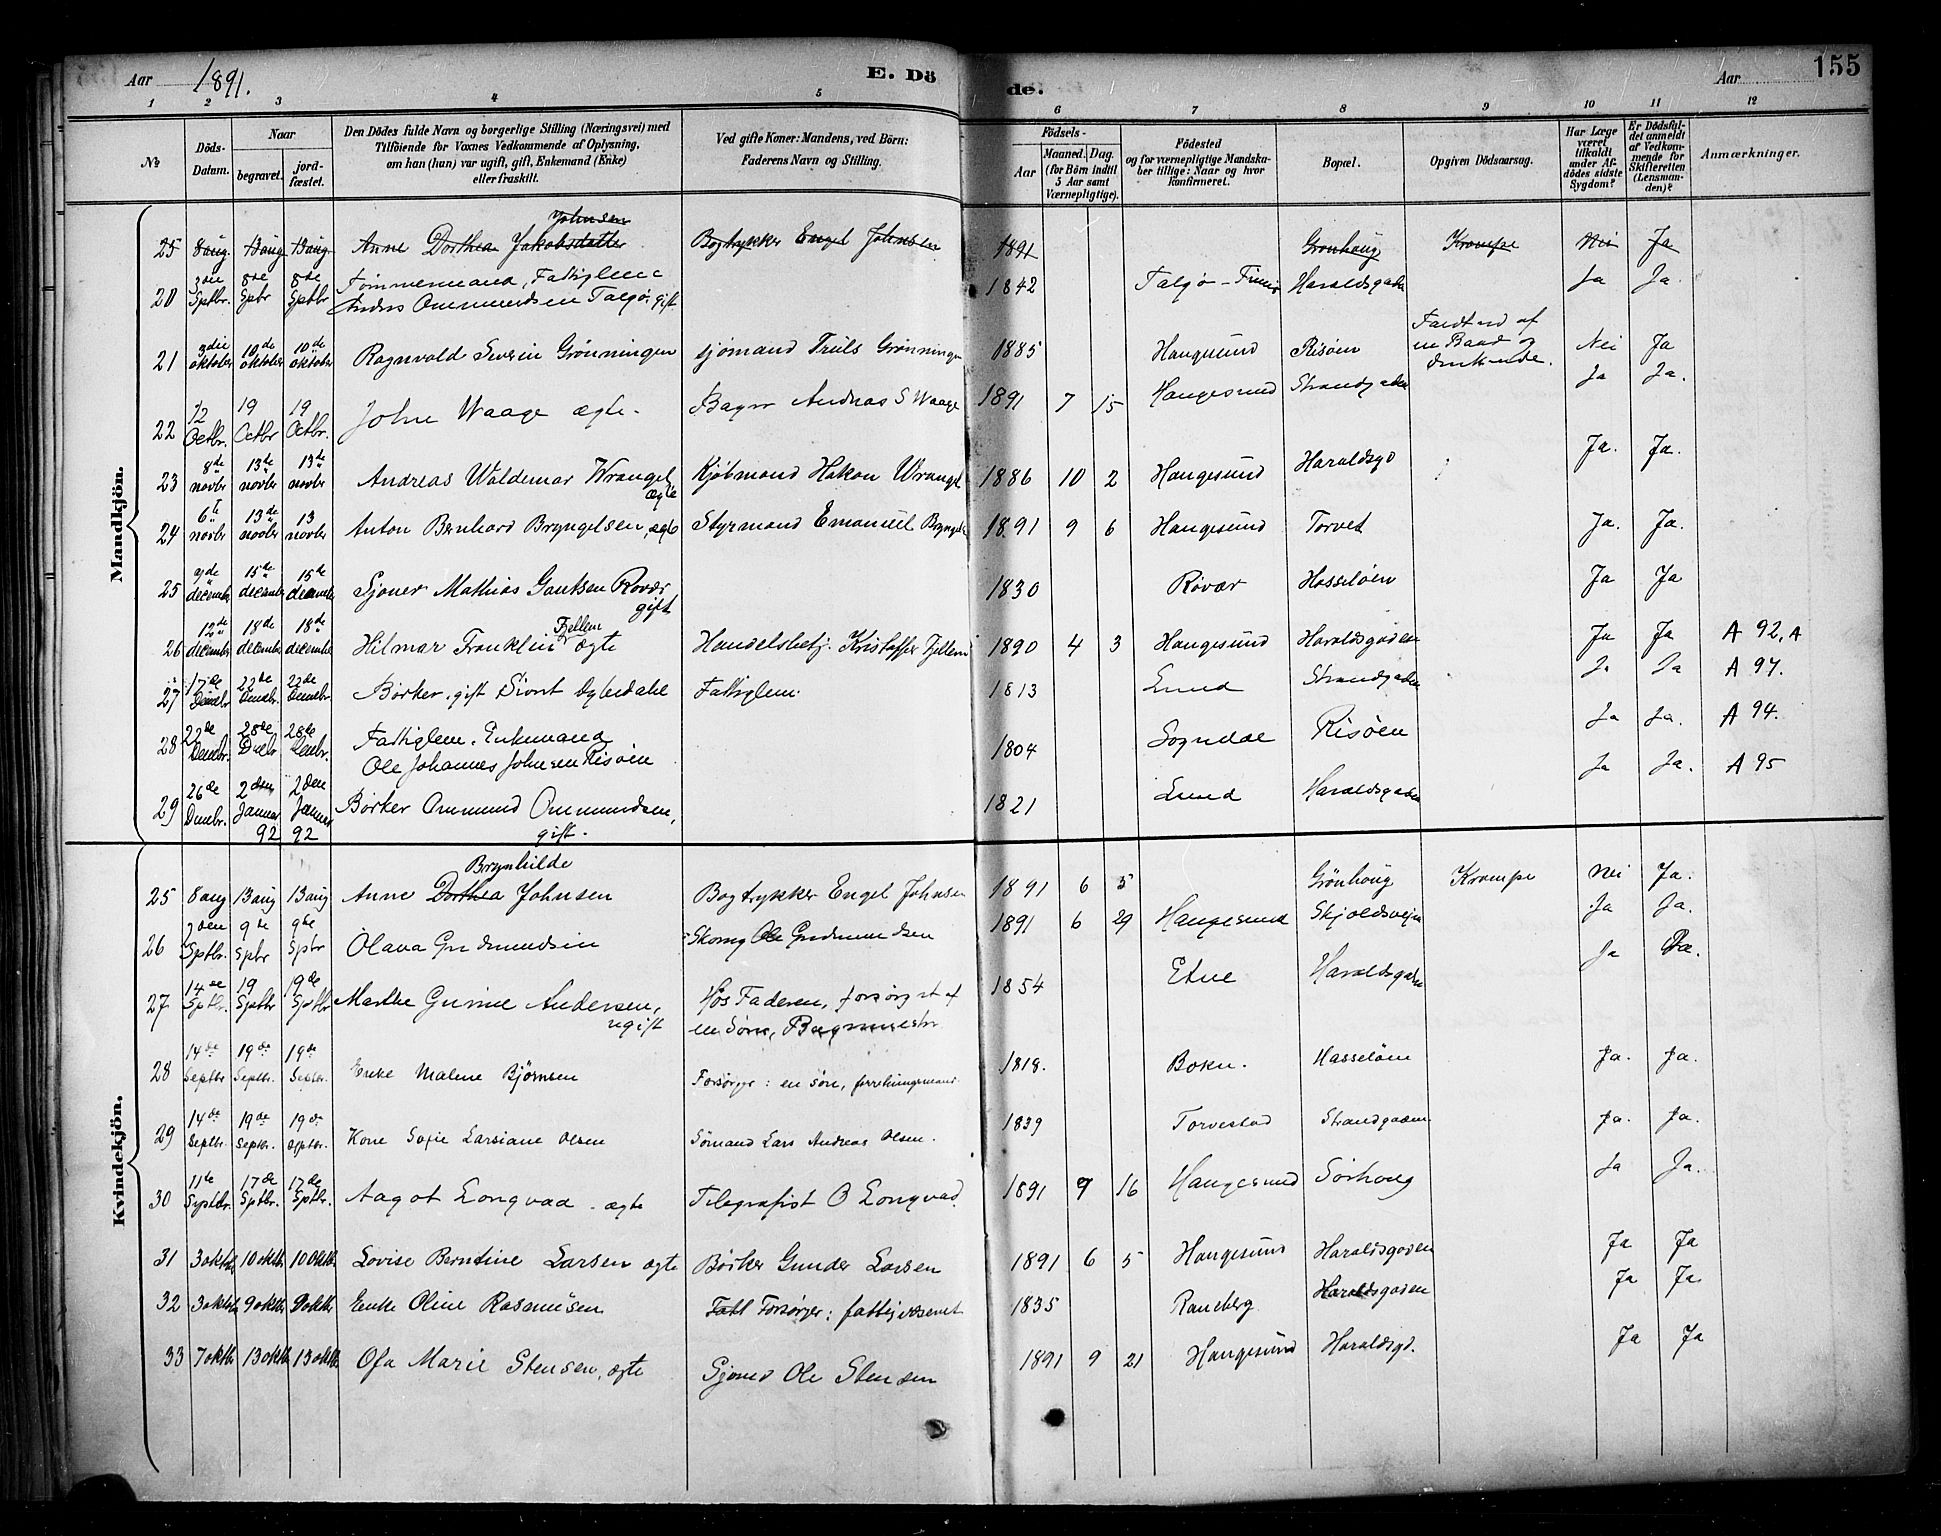 Aar 1891. E. Dö de. Aar 155
1 2 3 4 5 6 7 8 9 10 11 12
No Döds-Datum. Naar begravet. jord-fæstet. Den Dödes fulde Navn og borgerlige Stilling (Næringsvei) med Tilföiende for Voxnes Vedkommende af Oplysning, om han (hun) var ugift, gift, Enkemand (Enke) eller fraskilt. Ved gifte Koner: Mandens, ved Börn: Faderens Navn og Stilling. Födsels- Aar Maaned. Dag. (for Börn indtil 5 Aar samt Værnepligtige). Födested og for værnepligtige Mandska-ber tillige: Naar og hvor konfirmeret. Bopæl. Opgiven Dödsaarsag. Har Læge været tilkaldt under Af-dödes sidste Sygdom? Er Dödsfal-det anmeldt af Vedkom-mende for Skifteretten (Lensman-den)? Anmærkninger.
Mandkjön.
Johnsen
25 8 aug. 13 aug 13 aug. Anne Dorthea Jakobsdatter Bogtrykker Engel Johnsen 1891 Grønhaug Krampe Nei Ja
20 3die Sptbr. 8de Spbr 8de Sptbr Tømmermand, Fattiglem Anders Ommundsen Talgø, gift 1842 Talgø - Finnø Haraldsgaden Ja Ja.
21 3die oktober 10de oktober 10de oktober Ragnvald Severin Grønningen sjømand Truls Grønningen 1885 Haugesund Risøen Faldt ud af en Baad og druknede. Nei Ja
22 12 Octbr. 19 Octbr 19 Octbr. John Waage ægte. Bager Andreas S Waage 1891 7 15 Haugesund Strandgaden Ja Ja.
23 8de novbr 13de novbr 13de novbr Andreas Waldemar Wrangel ægte Kjøbmand Hakon Wrangel 1886 10 2 Haugesund Haraldsgd Ja. Ja.
24 6te novbr 13de novbr 13 novbr Anton Bernhard Bryngelsen, ægte Styrmand Emanuel Bryngels 1891 9 6 Haugesund Torvet Ja. Ja.
25 9de decembr 15de decembr 15de decembr Sjøner Mathias Gautsen Rovær gift 1830 Røvær Hasseløen Ja Ja
26 12de decembr 18de decembr 18de decembr Hilmar Franklin Fjellem ægte Handelsbetj. Kristoffer Fjellem 1890 4 3 Haugesund Haraldsgaden Ja Ja A 92, A
27 17de Dcmbr 22de Dcmbr. 22de Dcmbr. Børker, gift Sivert Dybedahl Fattiglem. 1813 Lund Strandgaden Ja Ja A 97.
28 22de Dcmbr. 28de Dcbr 28de Dcmbr. Fattiglem. Enkemand Ole Johannes Johnsen Risøen 1804 Sogndal Risøen Ja Ja. A 94.
29 26de Dcmbr. 2den Januar 92 2den Januar 92 Børker Ommund Ommundsen, gift. 1821 Lund Haraldsgaden Ja Ja. A 95
Kvindekjön.
Brynhilde
25 8 aug 13 aug 13 aug Anne Dorthea Johnsen Bogtrykker Engel Johnsen 1891 6 5 Grönhaug Krampe Nei Ja.
26 3den Sptbr. 9de Spbr 9de Spbr Olava Gudmundsen Skomg Ole Gudmundsen 1891 6 29 Haugesund Skjoldsvejen Ja Ja.
27 14de Sptbr. 19 Sptbr 19de Sptbr Marthe Gurine Andersen, ugift Hos Faderen, forsørget af en Søn, Bagmester 1854 Etne Haraldsgaden Ja
28 14de Septbr 19de Septbr. 19de Septbr. Enke Malene Bjørnsen Forsørger: en søn, forretningsmand. 1818. Bokn. Hasseløen Ja. Ja.
29 14de Septbr. 19de Septbr. 19de Septbr. Kone Sofie Larsiane Olsen Sømand Lars Andreas Olsen. 1839 Torvestad Strandgaden Ja. Ja.
30 11te Septbr. 17de Sptbr. 17de Sptbr. Aagot Longvad. ægte Telegrafist O Longvad. 1891 7 16 Haugesund Sørhaug Ja Ja.
31 3 oktbr 10 oktbr 10 oktbr. Lovise Berntine Larsen ægte Børker Gunder Larsen 1891 6 5 Haugesund Haraldsgaden Ja Ja
32 3 oktbr 9 oktbr 9 oktbr Enke Oline Rasmusen Fatt Forsørger: fattigvæsenet 1835 Raneberg Haraldsgaden Ja Ja.
33 7 oktbr 13 oktbr 13 oktbr. Ofa Marie Stensen, ægte Sjømd Ole Stensen 1891 9 21 Haugesund Haraldsgd. Ja Ja